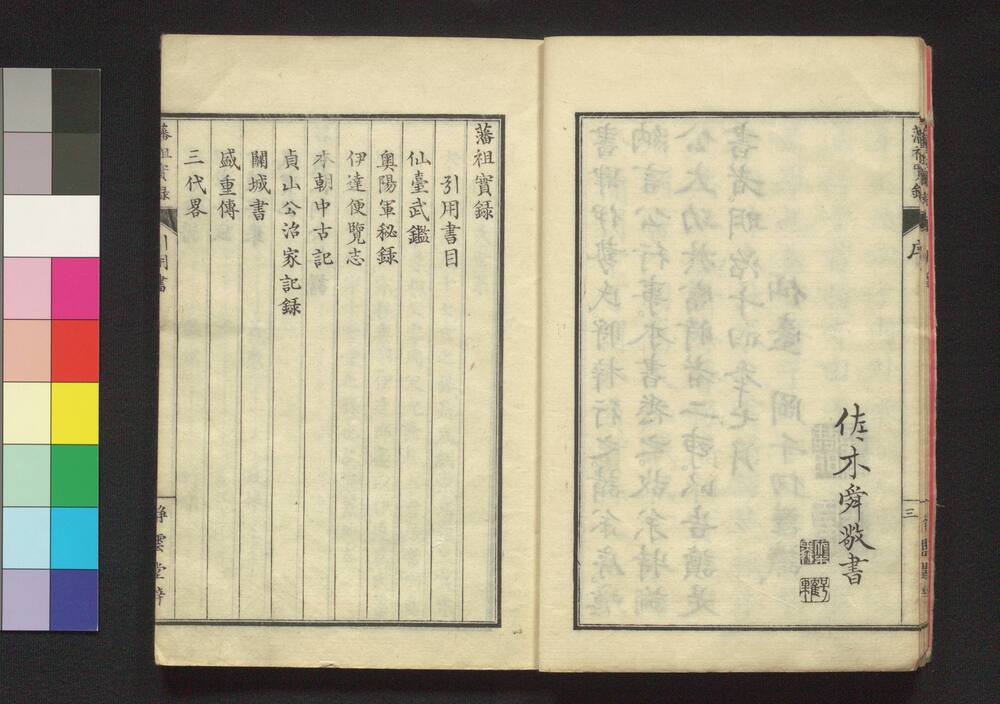 序
三
佐々木舜敬書
藩祖實録
引用書目
仙臺武鑑
奥陽軍秘録
伊達便覽志
本朝中古記
貞山公治家記録
關城書
盛重傳
三代畧
藩祖實録
引用書
靜雲堂梓